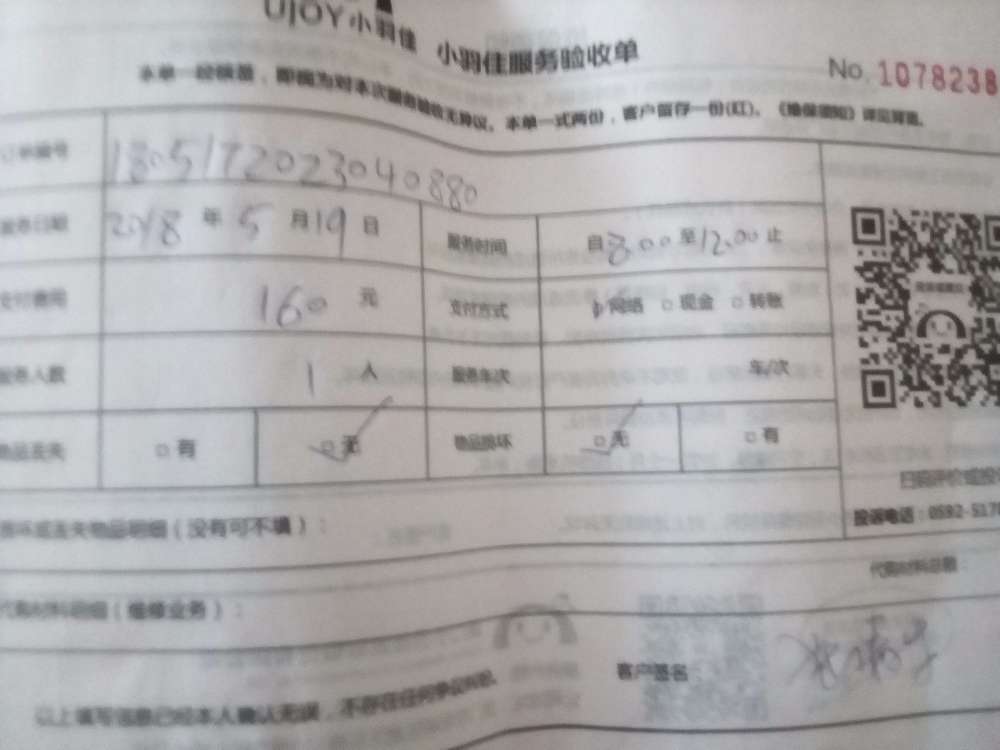 UJOY小羽佳 小羽佳服务验收单
No. 1078238
本单一经核签，即视为对本次服务验收无异议。本单一式两份，客户留存一份(红)。《维保须知》详见背面。
订单编号 180517202304 0880
服务日期 2018 年 5 月 19 日 服务时间 自 8:00 至 12:00 止
支付费用 160 元 支付方式 网络 □ 现金 □ 转账
服务人数 1 人 服务车次 车/次
物品丢失 □ 有 □ 无 物品损坏 □ 无 □ 有
扫码评价或投
投诉电话：0592-517
损坏或丢失物品明细（没有可不填）：
代购材料总额：
代购材料明细（维修业务）：
客户签名：
以上填写信息已经本人确认无误，不存在任何争议